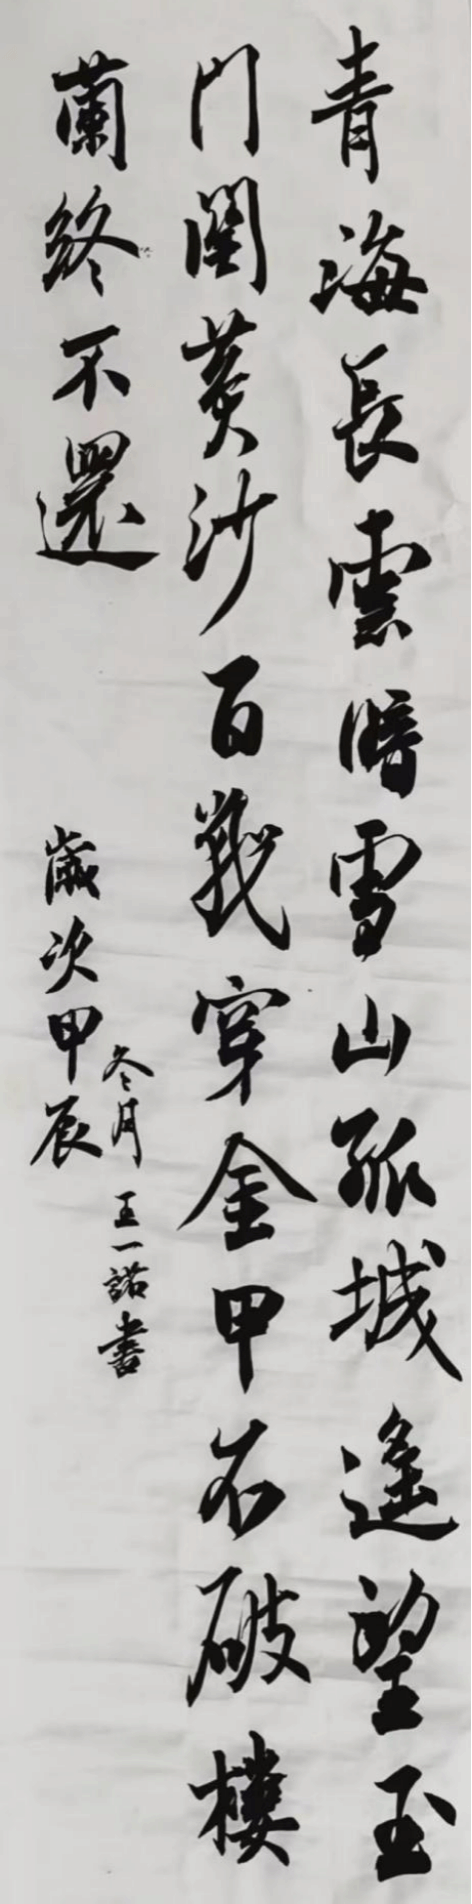 青海長雲暗雪山孤城遥望玉
門関黄沙百戰穿金甲不破樓
蘭終不還
歲次甲辰
冬月王一諾書